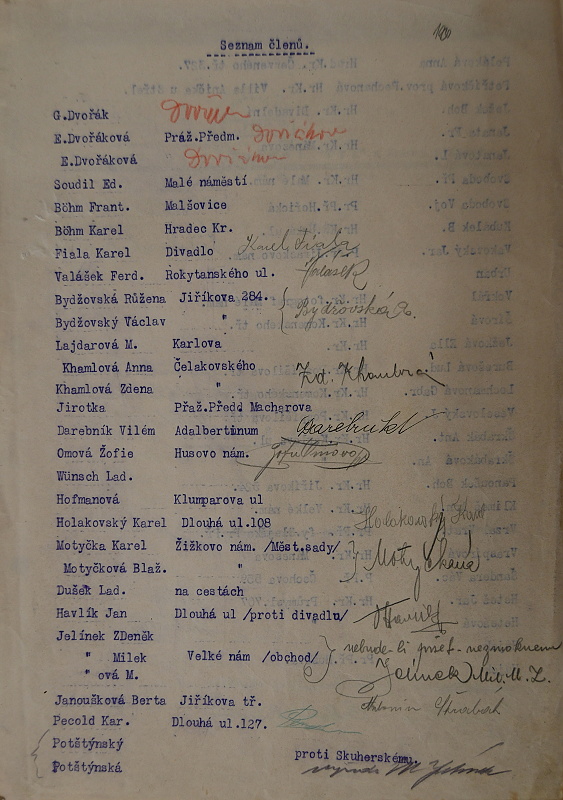 Seznam členů.
G.Dvořák Dvořák
E.Dvořáková Práž.Předm. Dvořáková
E.Dvořáková " Dvořáková
Soudil Ed. Malé náměstí
Böhm Frant. Malšovice
Böhm Karel Hradec Kr.
Fiala Karel Divadlo Karel Fiala
Valášek Ferd. Rokytanského ul. Valášek
Bydžovská Růžena Jiříkova 284. Bydžovská R.
Bydžovský Václav "
Lajdarová M. Karlova
Khamlová Anna Čelakovského Zd. Khamlová
Khamlová Zdena "
Jirotka Přaž.Předd Macharova
Darebník Vilém Adalbertinum Darebník
Omová Žofie Husovo nám. Žofie Omová
Wünsch Lad.
Hofmanová Klumparova ul
Holakovský Karel Dlouhá ul.108 Holakovský Karel
Motyčka Karel Žižkovo nám. /Měst.sady/ Motyčková
Motyčková Blaž. "
Dušek Lad. na cestách
Havlík Jan Dlouhá ul /proti divadlu/ Havlík
Jelínek ZDeněk nebude-li pršet - nezmoknem
" Milek Velké nám /obchod/ Jelínek Mil. M. Z.
" ová M.
Janoušková Berta Jiříkova tř.
Pecold Kar. Dlouhá ul.127.
Potštýnský
Potštýnská proti Skuherskému.